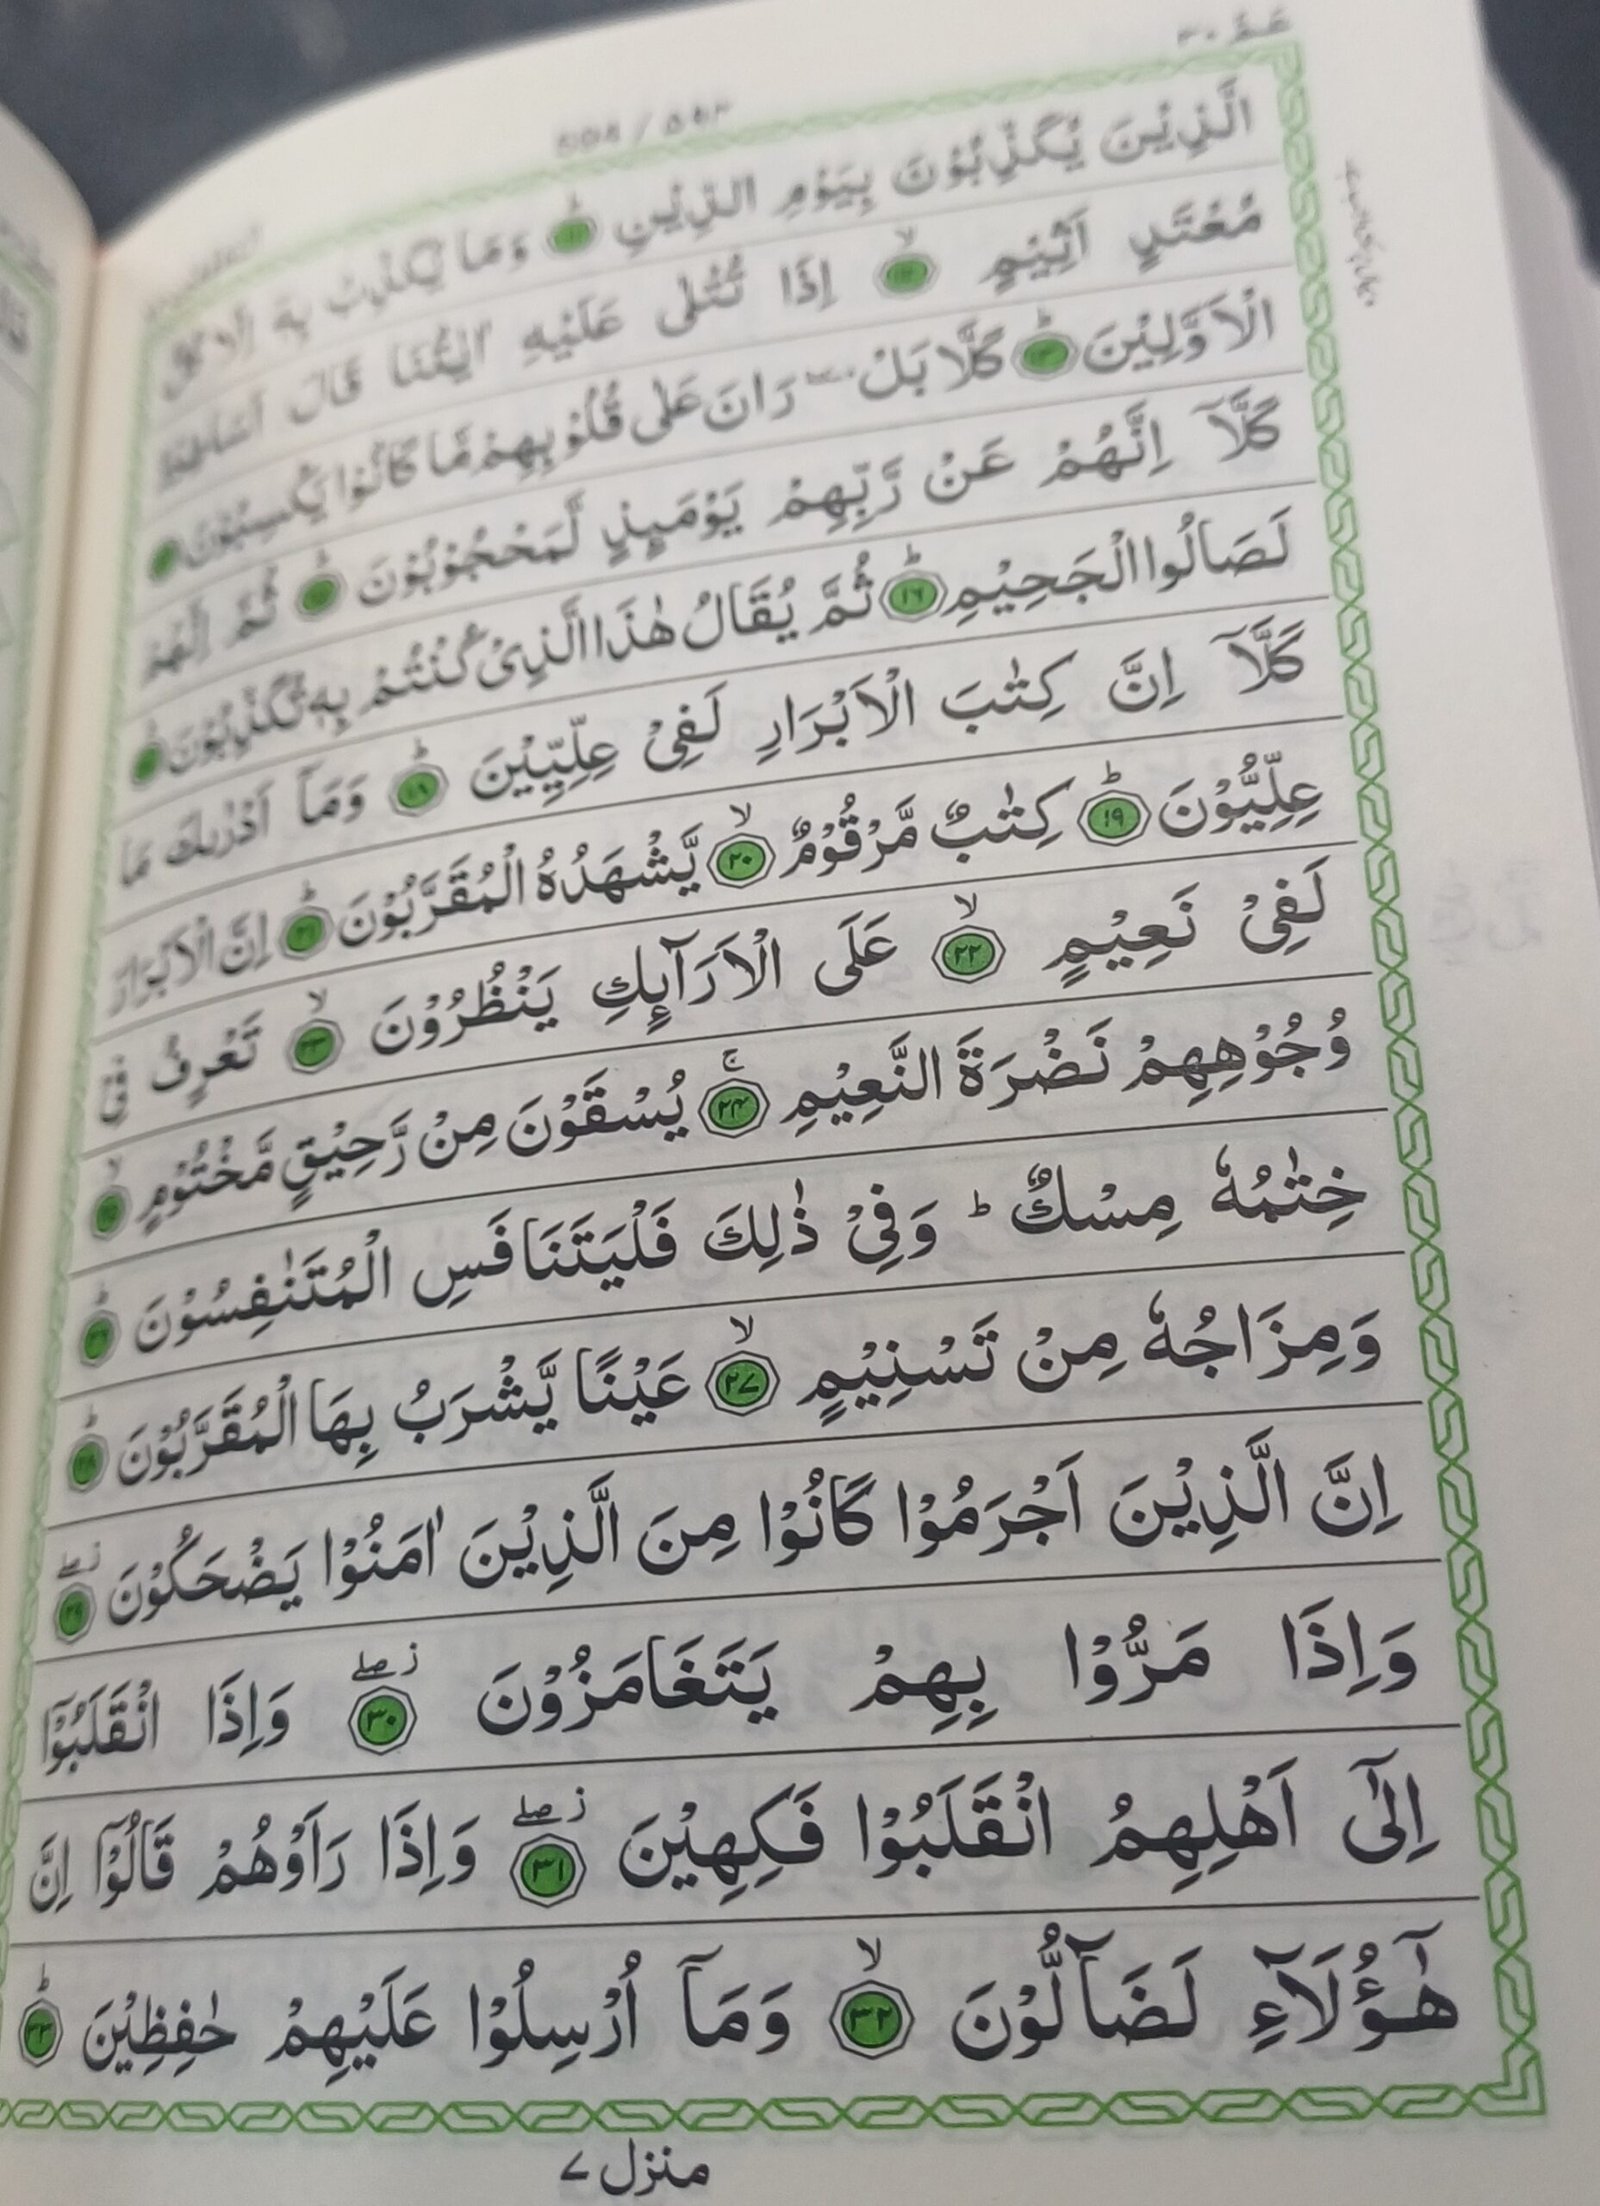 عم ٣٠
الَّذِيْنَ يُكَذِّبُوْنَ بِيَوْمِ الدِّيْنِ ۝ وَمَا يُكَذِّبُ بِهٖٓ اِلَّا كُلُّ
مُعْتَدٍ اَثِيْمٍ ۝ اِذَا تُتْلٰى عَلَيْهِ اٰيٰتُنَا قَالَ اَسَاطِيْرُ
الْاَوَّلِيْنَ ۝ كَلَّا بَلْ رَانَ عَلٰى قُلُوْبِهِمْ مَّا كَانُوْا يَكْسِبُوْنَ ۝
كَلَّآ اِنَّهُمْ عَنْ رَّبِّهِمْ يَوْمَىِٕذٍ لَّمَحْجُوْبُوْنَ ۝ ثُمَّ اِنَّهُمْ
لَصَالُوا الْجَحِيْمِ ۝١٦ ثُمَّ يُقَالُ هٰذَا الَّذِيْ كُنْتُمْ بِهٖ تُكَذِّبُوْنَ ۝
كَلَّآ اِنَّ كِتٰبَ الْاَبْرَارِ لَفِيْ عِلِّيِّيْنَ ۝١٨ وَمَآ اَدْرٰىكَ مَا
عِلِّيُّوْنَ ۝١٩ كِتٰبٌ مَّرْقُوْمٌ ۝٢٠ يَّشْهَدُهُ الْمُقَرَّبُوْنَ ۝٢١ اِنَّ الْاَبْرَارَ
لَفِيْ نَعِيْمٍ ۝٢٢ عَلَى الْاَرَآىِٕكِ يَنْظُرُوْنَ ۝٢٣ تَعْرِفُ فِيْ
وُجُوْهِهِمْ نَضْرَةَ النَّعِيْمِ ۝٢٤ يُسْقَوْنَ مِنْ رَّحِيْقٍ مَّخْتُوْمٍ ۝
خِتٰمُهٗ مِسْكٌ ؕ وَفِيْ ذٰلِكَ فَلْيَتَنَافَسِ الْمُتَنٰفِسُوْنَ ۝٢٦
وَمِزَاجُهٗ مِنْ تَسْنِيْمٍ ۝٢٧ عَيْنًا يَّشْرَبُ بِهَا الْمُقَرَّبُوْنَ ۝٢٨
اِنَّ الَّذِيْنَ اَجْرَمُوْا كَانُوْا مِنَ الَّذِيْنَ اٰمَنُوْا يَضْحَكُوْنَ ۝٢٩
وَاِذَا مَرُّوْا بِهِمْ يَتَغَامَزُوْنَ ۝٣٠ وَاِذَا انْقَلَبُوْٓا
اِلٰٓى اَهْلِهِمُ انْقَلَبُوْا فَكِهِيْنَ ۝٣١ وَاِذَا رَاَوْهُمْ قَالُوْٓا اِنَّ
هٰٓؤُلَآءِ لَضَآلُّوْنَ ۝٣٢ وَمَآ اُرْسِلُوْا عَلَيْهِمْ حٰفِظِيْنَ ۝٣٣
منزل ٧